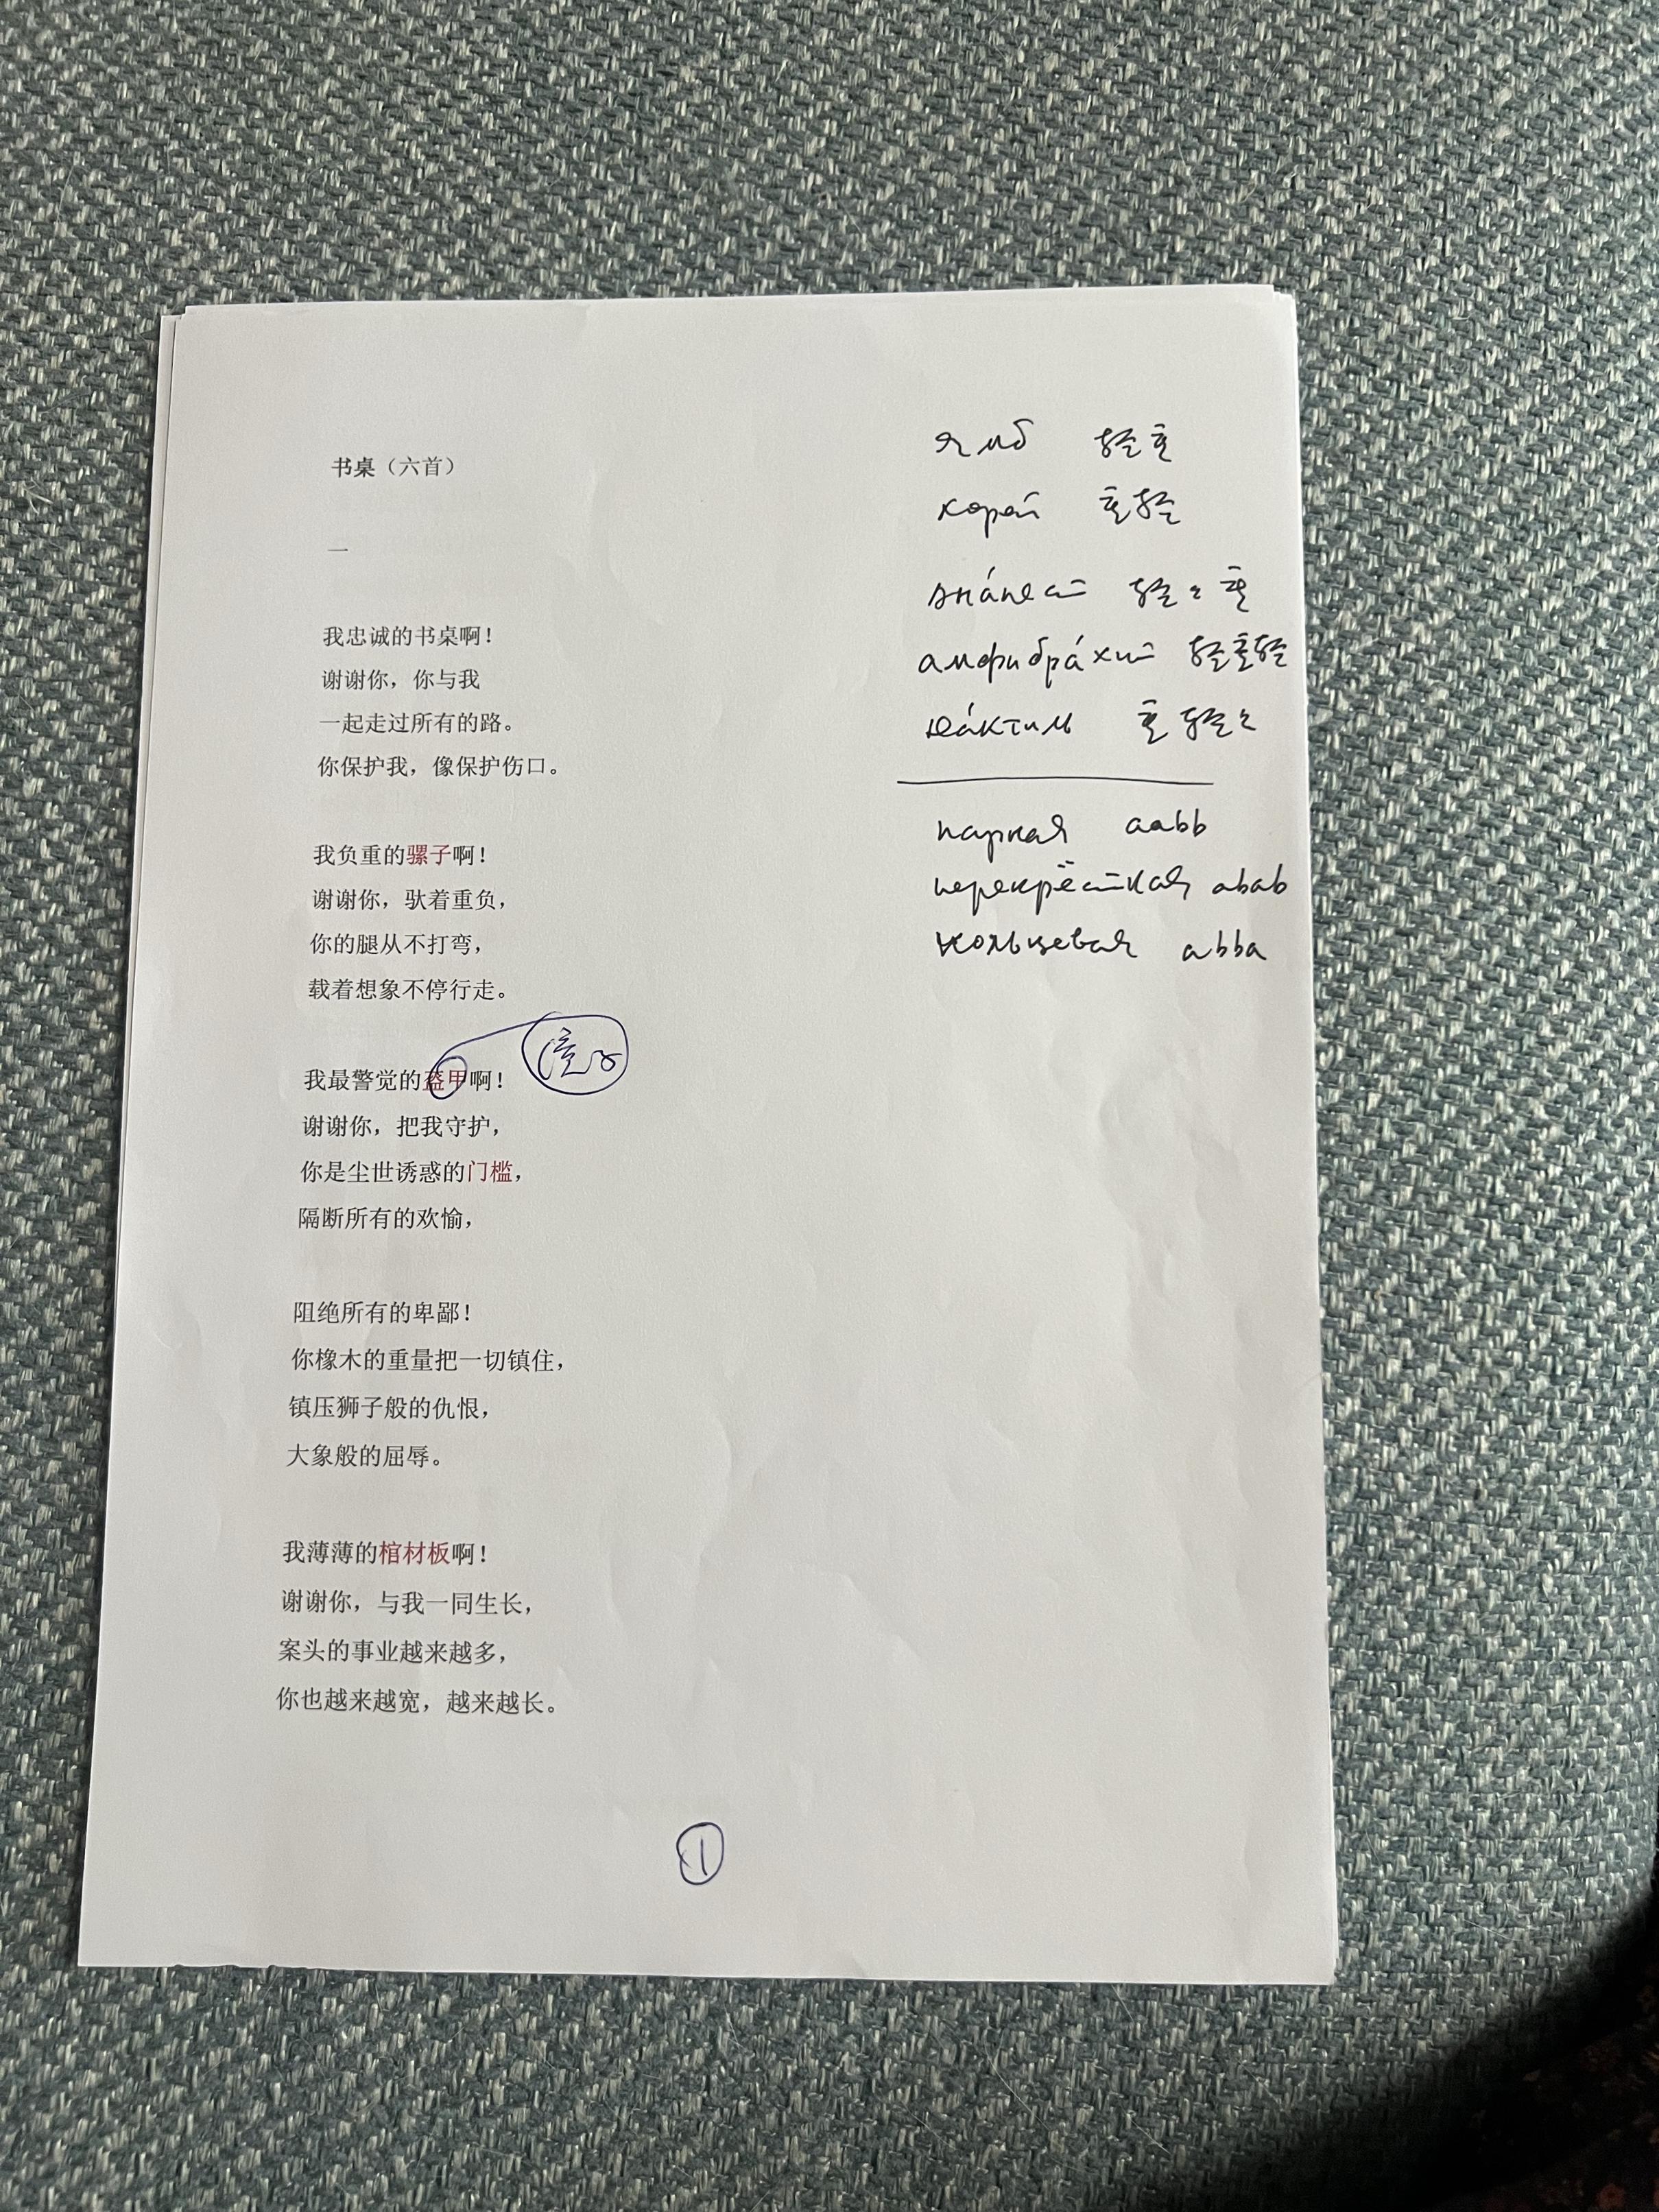 书桌（六首）
一
我忠诚的书桌啊！
谢谢你，你与我
一起走过所有的路。
你保护我，像保护伤口。
我负重的骡子啊！
谢谢你，驮着重负，
你的腿从不打弯，
载着想象不停行走。
我最警觉的盔甲啊！
谢谢你，把我守护，
你是尘世诱惑的门槛，
隔断所有的欢愉，
阻绝所有的卑鄙！
你橡木的重量把一切镇住，
镇压狮子般的仇恨，
大象般的屈辱。
我薄薄的棺材板啊！
谢谢你，与我一同生长，
案头的事业越来越多，
你也越来越宽，越来越长。
①
ямб 轻重
хорей 重轻
анáпест 轻轻重
амфибрáхий 轻重轻
дáктиль 重轻轻
парная aabb
перекрёстная abab
кольцевая abba